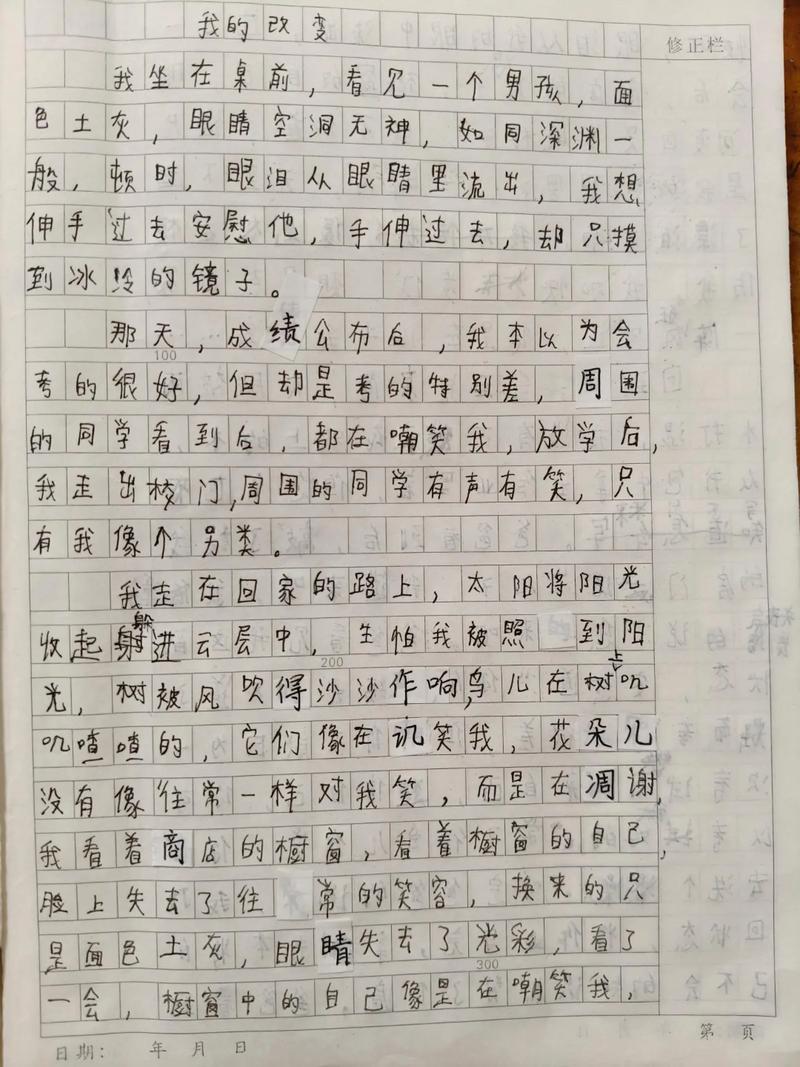 我的改变
修正栏
我坐在桌前，看见一个男孩，面
色土灰，眼睛空洞无神，如同深渊一
般，顿时，眼泪从眼睛里流出，我想
伸手过去安慰他，手伸过去，却只摸
到冰冷的镜子。
那天，成绩公布后，我本以为会
100
考的很好，但却是考的特别差，周围
的同学看到后，都在嘲笑我，放学后，
我走出校门，周围的同学有声有笑，只
有我像个另类。
我走在回家的路上，太阳将阳光
收起躲进云层中，生怕我被照到阳
200
光，树被风吹得沙沙作响，鸟儿在树上叽
叽喳喳的，它们像在讥笑我，花朵儿
没有像往常一样对我笑，而是在凋谢，
我看着商店的橱窗，看着橱窗的自己，
脸上失去了往常的笑容，换来的只
是面色土灰，眼睛失去了光彩，看了
300
一会，橱窗中的自己像是在嘲笑我，
第 页
日期： 年 月 日